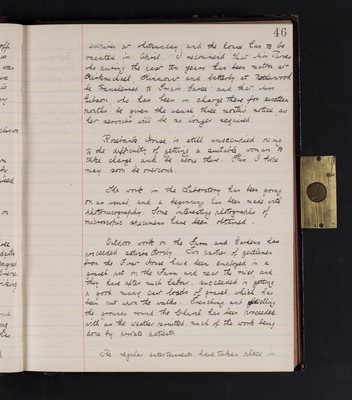 46
expires at Whitsunday and the house has to be
vacated in April. I recommend that Miss
who during the past ten years has been matron at
and latterly at
be transferred to House and that Miss
Gibson who has been in charge there for
months be given the usual three months notice as
her services will be no longer required.
House is still unoccupied owing
to the difficulty of getting a suitable woman to
take charge and be alone there. This I hope
may soon be overcome.
The work in the Laboratory has been going
on as usual and a beginning has been made with
photomicrography. Some interesting photographs of
microscopic specimens have been obtained.
Outdoor work on the Farm and Gardens has
proceeded satisfactorily. Two parties of gentlemen
from the House have been employed in a
gravel pit on the Farm and near the river, and
they have after much labour, succeeded in getting
a good many cart loads of gravel, which has
been put upon the walks. Trenching and
the grounds round the Church has been proceeded
with as the weather permitted much of the work being
done by private patients.
The regular entertainments have taken place in